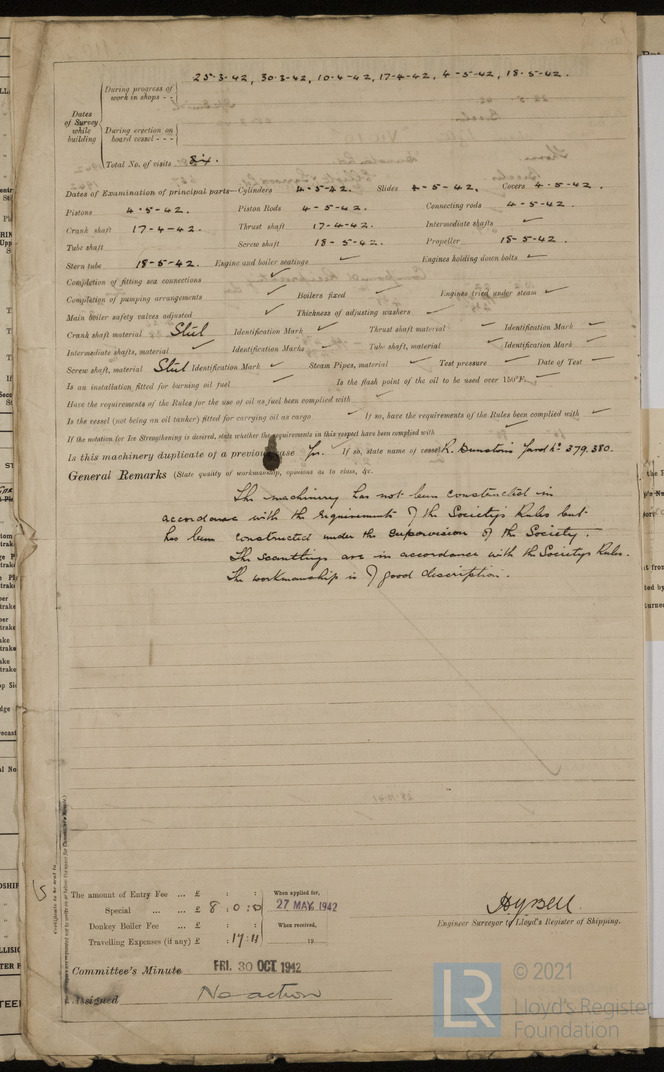 25-3-42, 30-3-42, 10-4-42, 17-4-42, 4-5-42, 18-5-42.
Dates of Survey while building
During progress of work in shops - -
During erection on board vessel - - -
Total No. of visits Six.
Dates of Examination of principal parts—Cylinders 4-5-42. Slides 4-5-42. Covers 4-5-42.
Pistons 4-5-42. Piston Rods 4-5-42. Connecting rods 4-5-42.
Crank shaft 17-4-42. Thrust shaft 17-4-42. Intermediate shafts ✓
Tube shaft Screw shaft 18-5-42. Propeller 18-5-42.
Stern tube 18-5-42. Engine and boiler seatings ✓ Engines holding down bolts ✓
Completion of fitting sea connections ✓
Completion of pumping arrangements ✓ Boilers fixed ✓ Engines tried under steam ✓
Main boiler safety valves adjusted ✓ Thickness of adjusting washers ✓
Crank shaft material Steel Identification Mark ✓ Thrust shaft material ✓ Identification Mark ✓
Intermediate shafts, material ✓ Identification Marks ✓ Tube shaft, material ✓ Identification Mark ✓
Screw shaft, material Steel Identification Mark ✓ Steam Pipes, material ✓ Test pressure ✓ Date of Test ✓
Is an installation fitted for burning oil fuel ✓ Is the flash point of the oil to be used over 150°F. ✓
Have the requirements of the Rules for the use of oil as fuel been complied with ✓
Is the vessel (not being an oil tanker) fitted for carrying oil as cargo ✓ If so, have the requirements of the Rules been complied with ✓
If the notation for Ice Strengthening is desired, state whether the requirements in this respect have been complied with
Is this machinery duplicate of a previous case Yes. If so, state name of vessel R. Dunston's Yard No 379.380.
General Remarks (State quality of workmanship, opinions as to class, &c.
The machinery has not been constructed in
accordance with the requirements of the Society's Rules but
has been constructed under the supervision of the Society.
The scantlings are in accordance with the Society's Rules.
The workmanship is of good description.
The amount of Entry Fee ... £ : :
Special ... ... £ 8 : 0 : 0
Donkey Boiler Fee ... £ : :
Travelling Expenses (if any) £ : 17 : 11
When applied for,
27 MAY 1942
When received,
19
Engineer Surveyor to Lloyd's Register of Shipping.
Committee's Minute FRI. 30 OCT 1942
Assigned No action
LR
© 2021
Lloyd's Register
Foundation